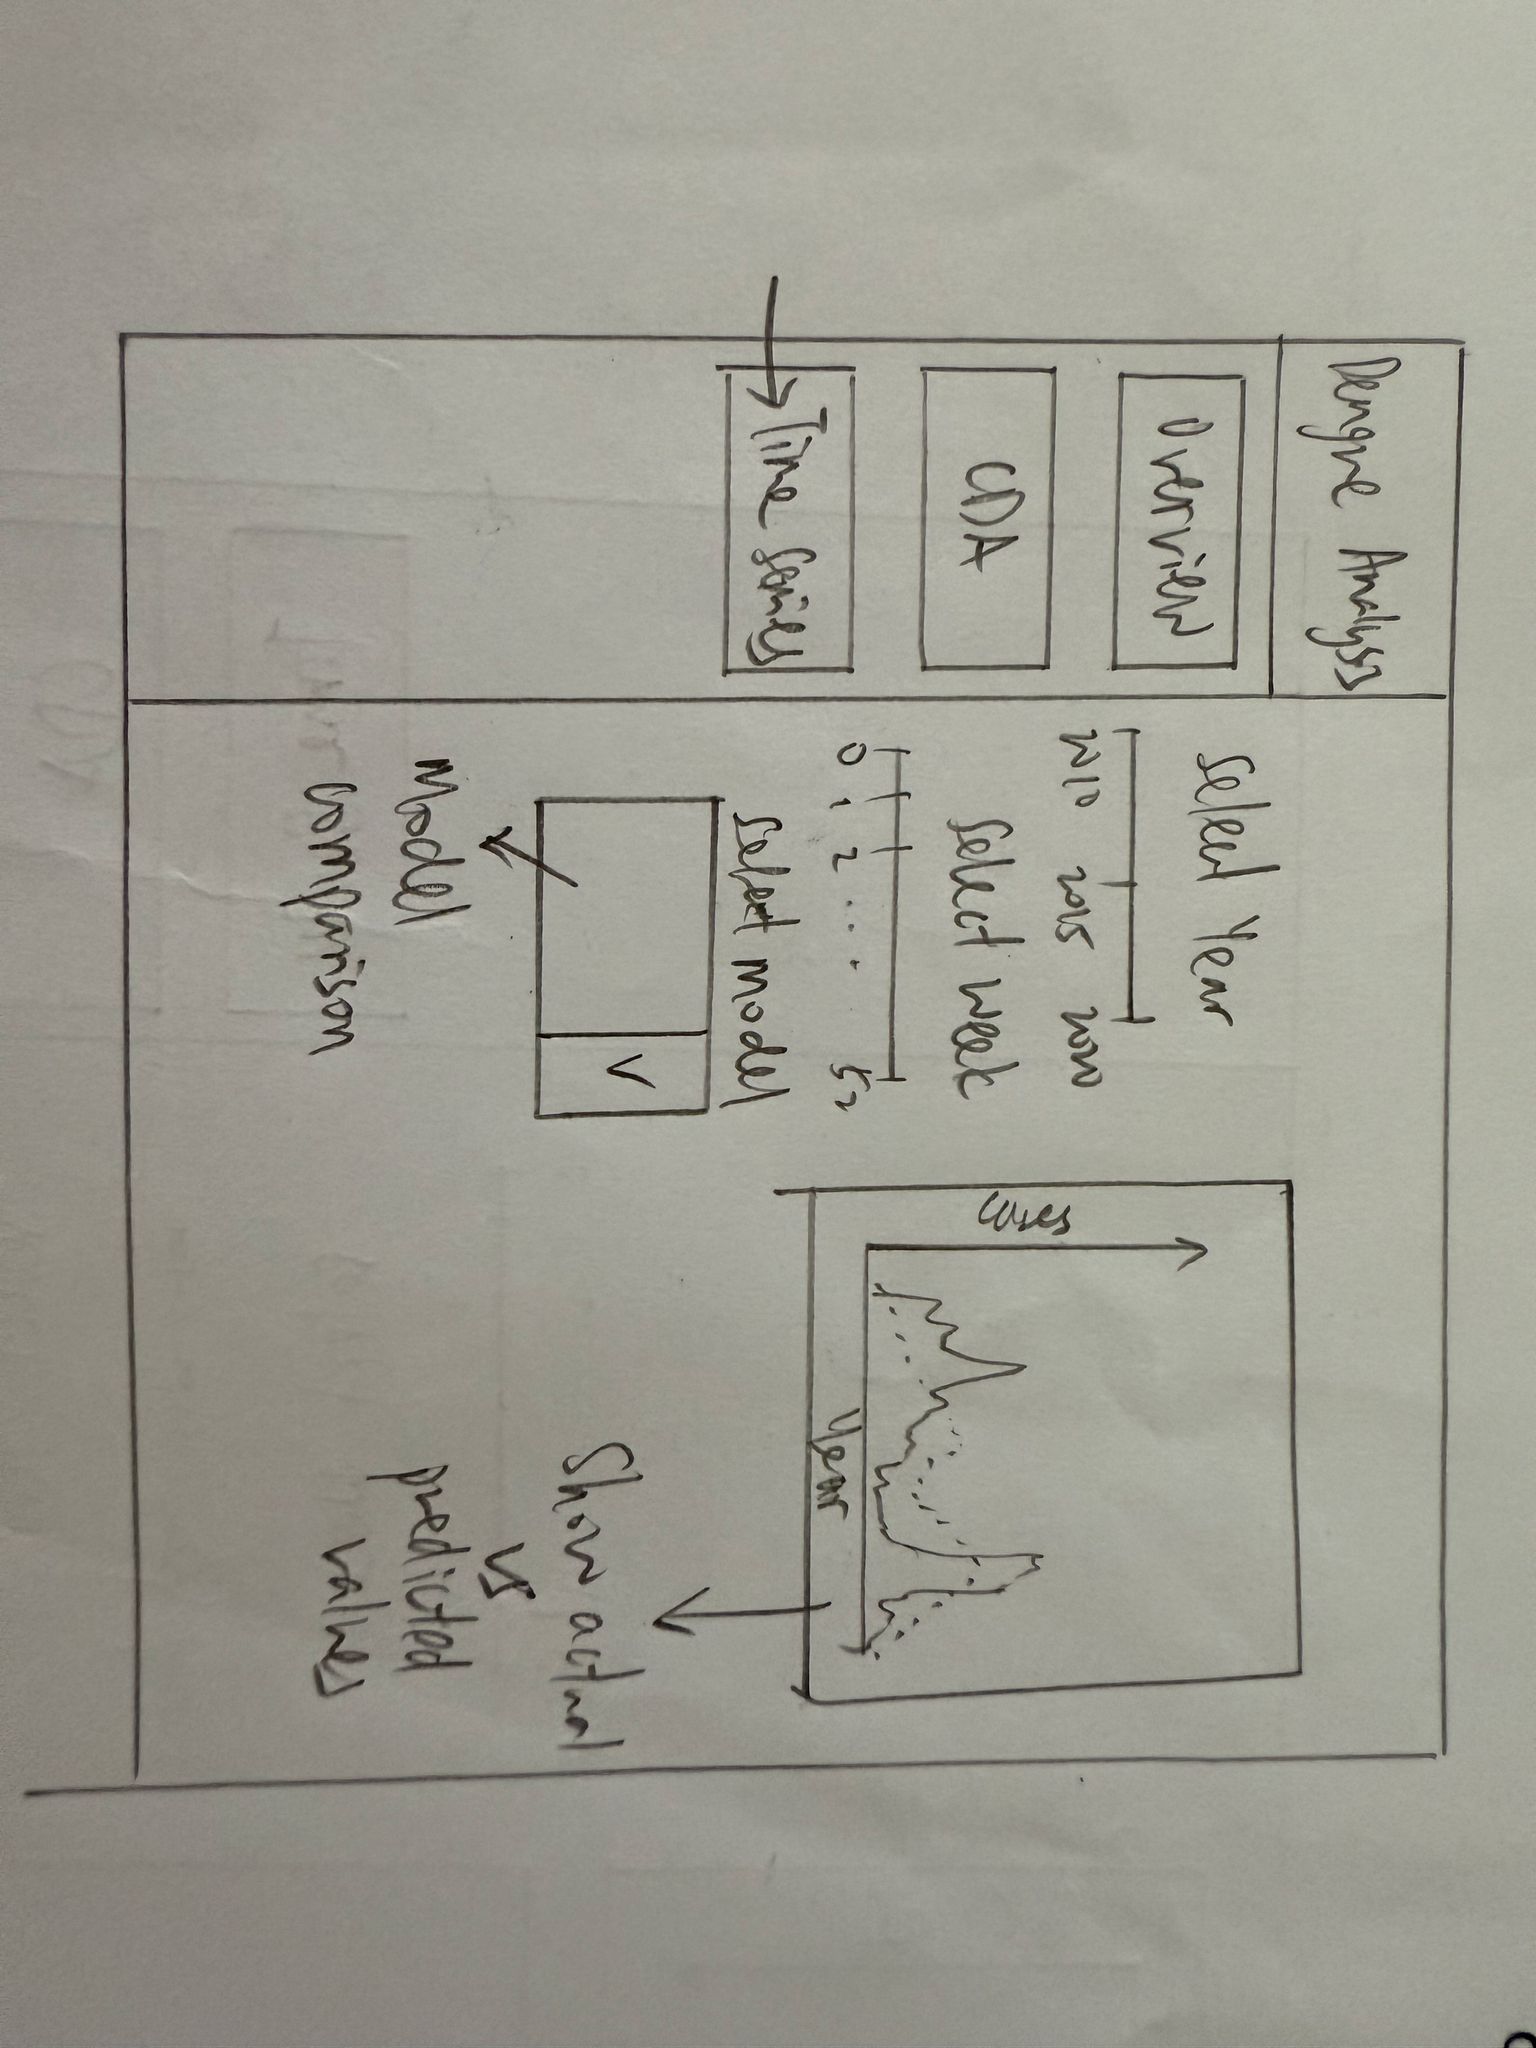 Dengue Analysis
Overview
CDA
Time Series
Select Year
2010 2015 2020
Select week
0 1 2 ... 52
Select model
V
Model
comparison
Cases
Year
Show actual
vs
predicted
values